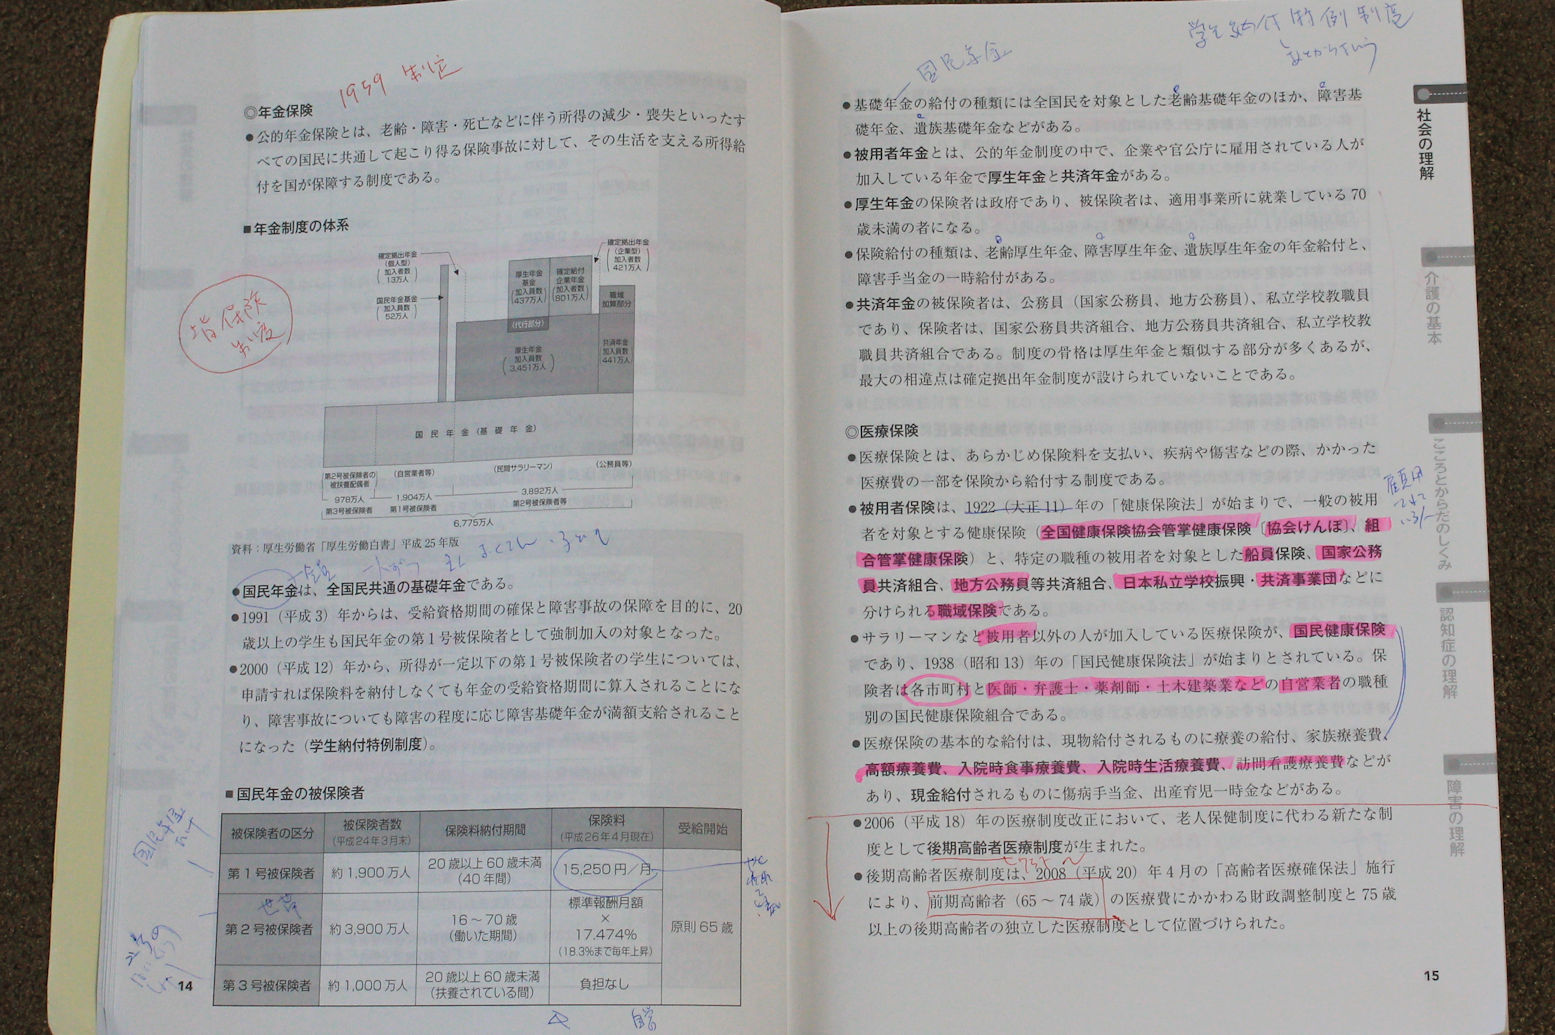 1959 制定
◎年金保険
●公的年金保険とは、老齢・障害・死亡などに伴う所得の減少・喪失といったす
べての国民に共通して起こり得る保険事故に対して、その生活を支える所得給
付を国が保障する制度である。
■年金制度の体系
確定拠出年金
(個人型)
加入者数
13万人
国民年金基金
加入員数
52万人
厚生年金
基金
加入員数
437万人
(代行部分)
確定給付
企業年金
加入者数
801万人
確定拠出年金
(企業型)
加入者数
421万人
職域
加算部分
厚生年金
加入員数
3,451万人
共済年金
加入員数
441万人
皆保険
制度
国民年金(基礎年金)
第2号被保険者の
被扶養配偶者
(自営業者等)
(民間サラリーマン)
(公務員等)
978万人
1,904万人
3,892万人
第3号被保険者
第1号被保険者
第2号被保険者等
6,775万人
資料:厚生労働省「厚生労働白書」平成25年版
●国民年金は、全国民共通の基礎年金である。
●1991(平成3)年からは、受給資格期間の確保と障害事故の保障を目的に、20
歳以上の学生も国民年金の第1号被保険者として強制加入の対象となった。
●2000(平成12)年から、所得が一定以下の第1号被保険者の学生については、
申請すれば保険料を納付しなくても年金の受給資格期間に算入されることにな
り、障害事故についても障害の程度に応じ障害基礎年金が満額支給されること
になった(学生納付特例制度)。
■国民年金の被保険者
被保険者の区分 被保険者数(平成24年3月末) 保険料納付期間 保険料(平成26年4月現在) 受給開始
第1号被保険者 約1,900万人 20歳以上60歳未満(40年間) 15,250円/月
第2号被保険者 約3,900万人 16~70歳(働いた期間) 標準報酬月額×17.474%(18.3%まで毎年上昇) 原則65歳
第3号被保険者 約1,000万人 20歳以上60歳未満(扶養されている間) 負担なし
国民年金
14
学生納付特例制度
国民年金
●基礎年金の給付の種類には全国民を対象とした老齢基礎年金のほか、障害基
礎年金、遺族基礎年金などがある。
●被用者年金とは、公的年金制度の中で、企業や官公庁に雇用されている人が
加入している年金で厚生年金と共済年金がある。
●厚生年金の保険者は政府であり、被保険者は、適用事業所に就業している70
歳未満の者になる。
●保険給付の種類は、老齢厚生年金、障害厚生年金、遺族厚生年金の年金給付と、
障害手当金の一時給付がある。
●共済年金の被保険者は、公務員(国家公務員、地方公務員)、私立学校教職員
であり、保険者は、国家公務員共済組合、地方公務員共済組合、私立学校教
職員共済組合である。制度の骨格は厚生年金と類似する部分が多くあるが、
最大の相違点は確定拠出年金制度が設けられていないことである。
◎医療保険
●医療保険とは、あらかじめ保険料を支払い、疾病や傷害などの際、かかった
医療費の一部を保険から給付する制度である。
●被用者保険は、1922(大正11)年の「健康保険法」が始まりで、一般の被用
者を対象とする健康保険(全国健康保険協会管掌健康保険〔協会けんぽ〕、組
合管掌健康保険)と、特定の職種の被用者を対象とした船員保険、国家公務
員共済組合、地方公務員等共済組合、日本私立学校振興・共済事業団などに
分けられる職域保険である。
●サラリーマンなど被用者以外の人が加入している医療保険が、国民健康保険
であり、1938(昭和13)年の「国民健康保険法」が始まりとされている。保
険者は各市町村と医師・弁護士・薬剤師・土木建築業などの自営業者の職種
別の国民健康保険組合である。
●医療保険の基本的な給付は、現物給付されるものに療養の給付、家族療養費、
高額療養費、入院時食事療養費、入院時生活療養費、訪問看護療養費などが
あり、現金給付されるものに傷病手当金、出産育児一時金などがある。
●2006(平成18)年の医療制度改正において、老人保健制度に代わる新たな制
度として後期高齢者医療制度が生まれた。
●後期高齢者医療制度は、2008(平成20)年4月の「高齢者医療確保法」施行
により、前期高齢者(65~74歳)の医療費にかかわる財政調整制度と75歳
以上の後期高齢者の独立した医療制度として位置づけられた。
15
社会の理解
介護の基本
こころとからだのしくみ
認知症の理解
障害の理解